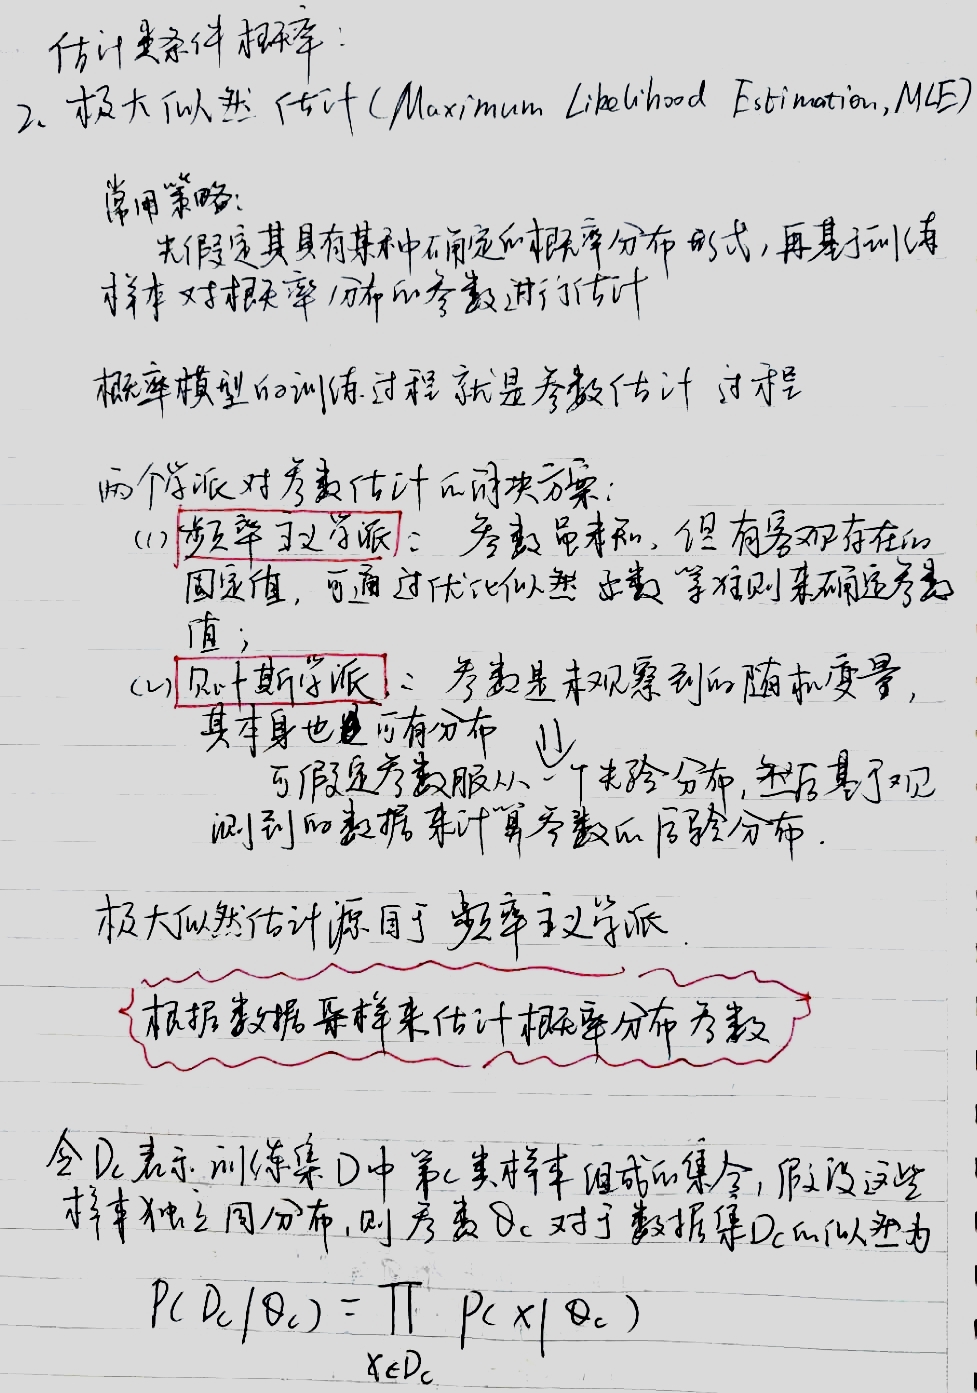 估计类条件概率:
2、极大似然估计(Maximum Likelihood Estimation, MLE)
常用策略:
先假定其具有某种确定的概率分布形式,再基于训练
样本对概率分布的参数进行估计
概率模型的训练过程就是参数估计过程
两个学派对参数估计的解决方案:
(1) 频率主义学派: 参数虽未知,但有客观存在的
固定值,可通过优化似然函数等准则来确定参数
值;
(2) 贝叶斯学派: 参数是未观察到的随机变量,
其本身也可有分布
⇓
可假定参数服从一个先验分布,然后基于观
测到的数据来计算参数的后验分布.
极大似然估计源自于频率主义学派.
根据数据采样来估计概率分布参数
令Dc表示训练集D中第c类样本组成的集合,假设这些
样本独立同分布,则参数θc对于数据集Dc的似然为
P(Dc|θc) = ∏ P(x|θc)
x∈Dc